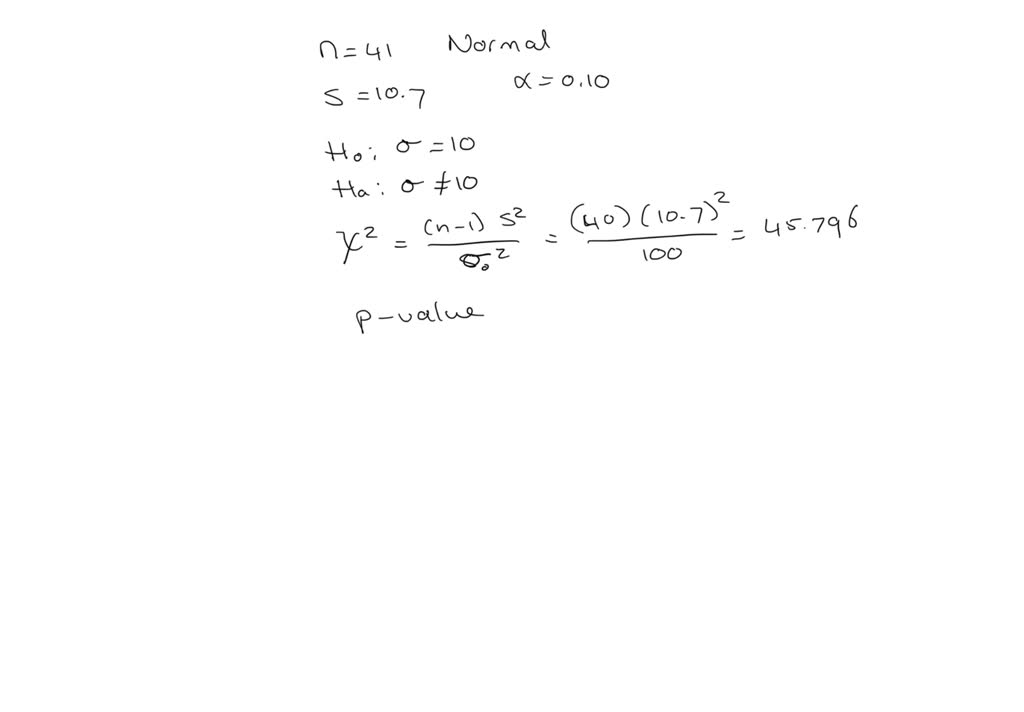 n = 41 Normal
s = 10.7 α = 0.10
H₀: σ = 10
Hₐ: σ ≠ 10
χ² = (n-1) s² / σ₀² = (40) (10.7)² / 100 = 45.796
p-value